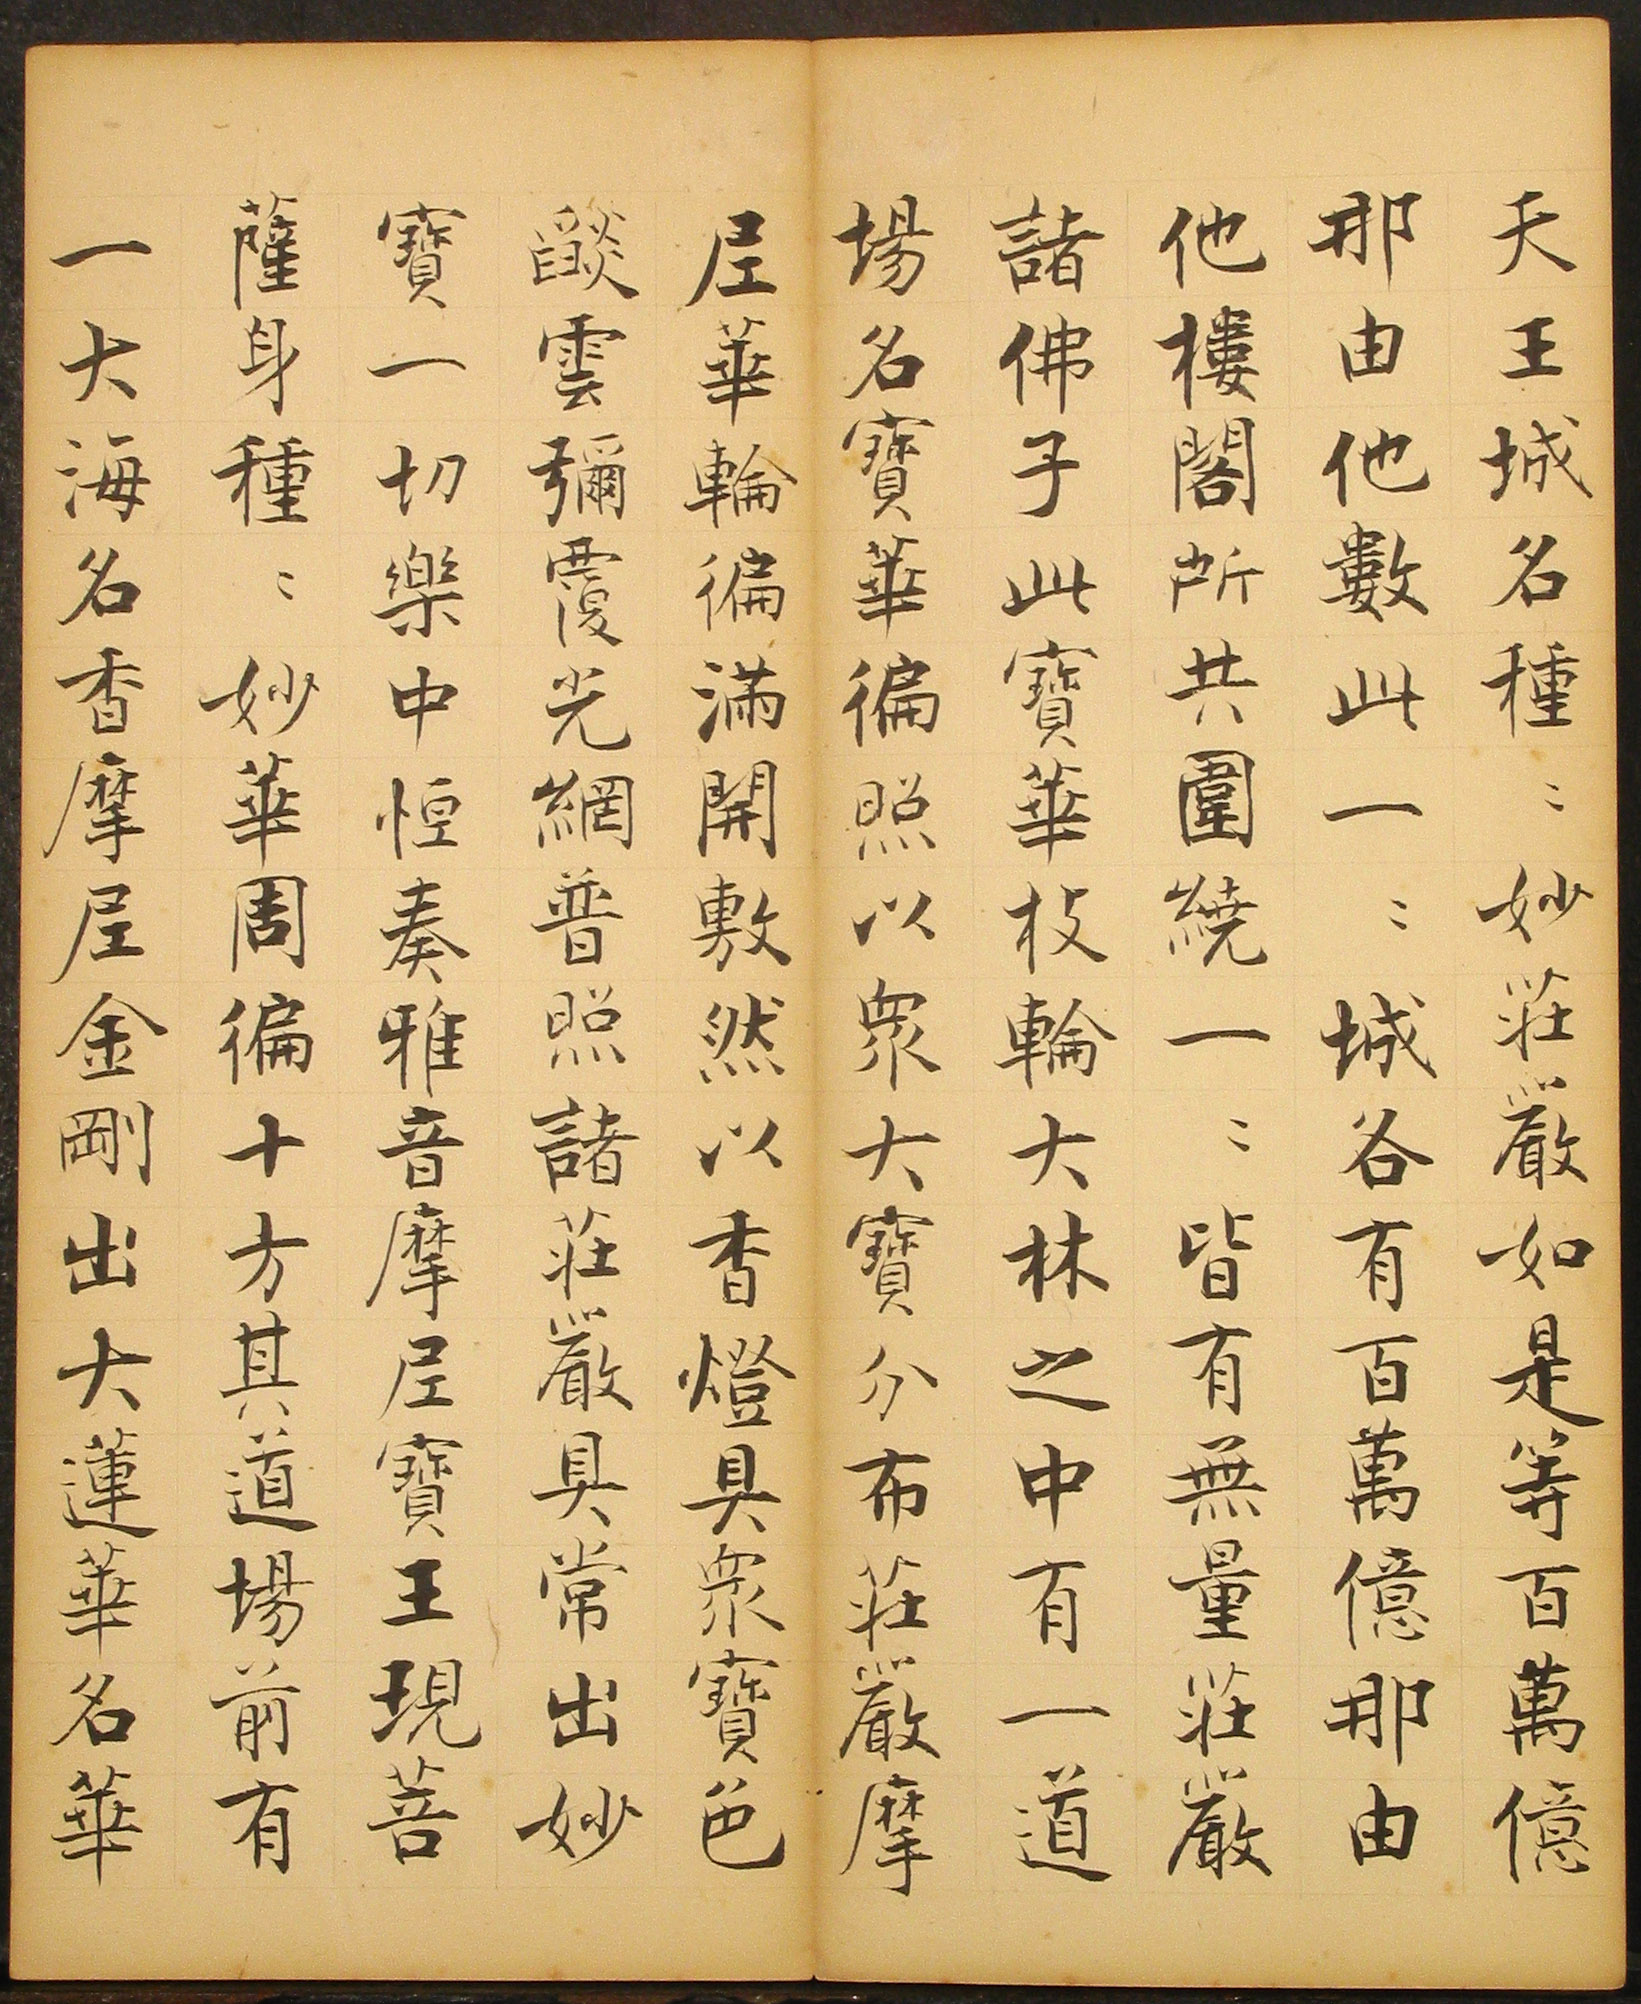 天王城名種〻妙莊嚴如是等百萬億
那由他數此一〻城各有百萬億那由
他樓閣所共圍繞一〻皆有無量莊嚴
諸佛子此寶華枝輪大林之中有一道
場名寶華徧照以衆大寶分布莊嚴摩
尼華輪徧滿開敷然以香燈具衆寶色
燄雲彌覆光網普照諸莊嚴具常出妙
寶一切樂中恒奏雅音摩尼寶王現菩
薩身種〻妙華周徧十方其道場前有
一大海名香摩尼金剛出大蓮華名華